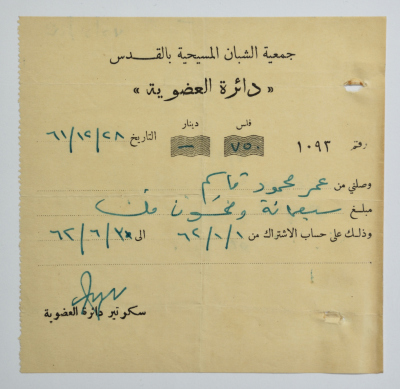 جمعية الشبان المسيحية بالقدس
« دائرة العضوية »
فلس دينار
رقم ١٠٩٢ ٧٥٠ — التاريخ ٦١/١٢/٢٨
وصلني من عمر محمود قاسم
مبلغ سبعمائة وخمسون فلس
وذلك على حساب الاشتراك من ٦٢/١/١ الى ٦٢/٦/٣٠
سكرتير دائرة العضوية